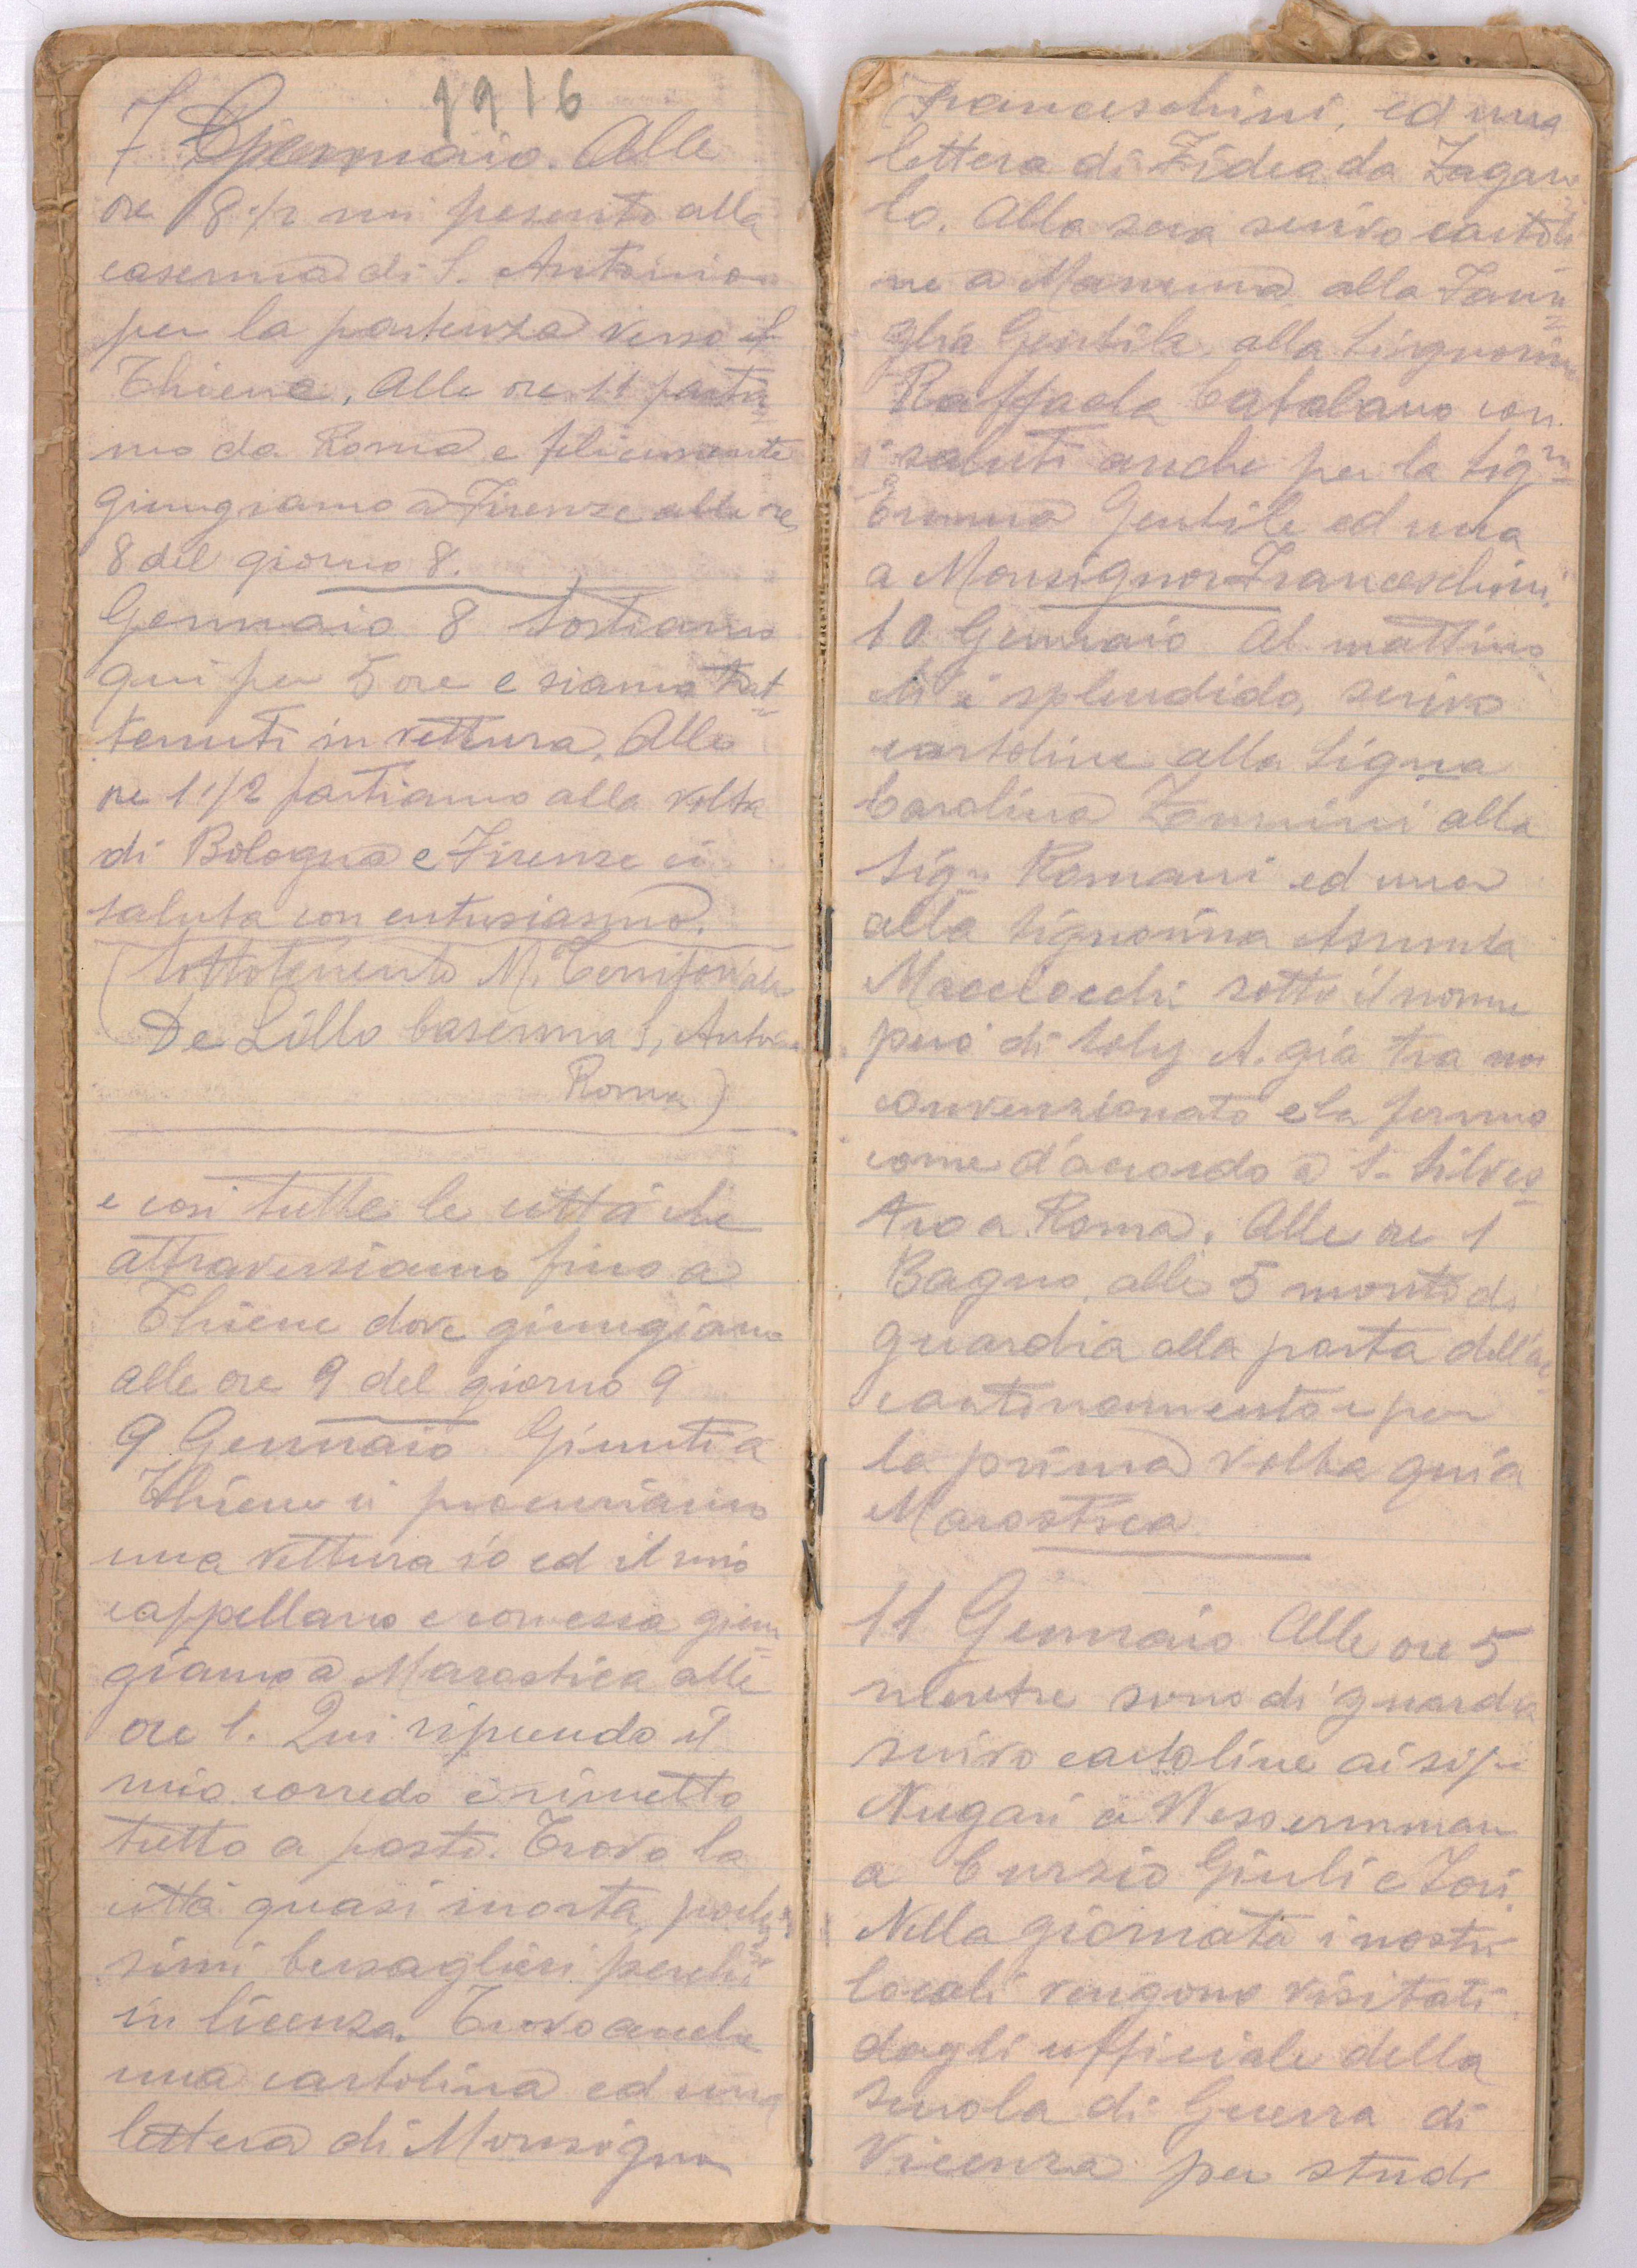 1916
7 Gennaio. Alle
ore 8 1/2 mi pesento alla
caserma di S. Antonio
per la partenza verso
Thiene, Alle ore 11 partia
mo da Roma e felicemente
giungiamo a Firenze alle ore
8 del giorno 8.
Gennaio 8 Sostiamo
qui per 5 ore e siamo trat
tenuti in vettura. Alle
ore 1 1/2 partiamo alla volta
di Bologna e Firenze ci
saluta con entusiasmo.
(Sottotenente M. Territoriale
De Lillo Caserma S, Antonio
Roma)
e così tutte le città che
attraversiamo fino a
Thiene dove giungiamo
alle ore 9 del giorno 9
9 Gennaio Giunti a
Thiene ci procuriamo
una vettura io ed il mio
cappellano e con essa giun
giamo a Marostica alle
ore 1. Qui riprendo il
mio corredo e rimetto
tutto a posto. Trovo la
città quasi morta, pochis
simi bersaglieri perchè
in licenza. Trovo anche
una cartolina ed una
lettera di Monsignor
Franceschini, ed una
lettera di Fidea da Zagaro
lo. Alla sera scrivo cartoli
ne a Mamma alla Fami
glia Gentile, alla Signorina
Raffaela Catalano con
i saluti anche per la Sig.na
Emma Gentile ed una
a Monsignor Franceschini.
10 Gennaio Al mattino
ch'è splendido, scrivo
cartoline alla Sigra
Carolina Zannini alla
Sigra Romani ed una
alla Signorina Assunta
Macciocchi sotto il nome
però di Soly A. già tra noi
convenzionato e la fermo
come d'accordo a S. Silves
tro a Roma. Alle ore 1
Bagno, alle 5 monto di
guardia alla porta dell'ac
cantonamento e per
la prima volta qui a
Marostica
11 Gennaio Alle ore 5
mentre sono di guardia
scrivo cartoline ai sigri
Nugari a Wessermman
a Curzio Giuli e Fori.
Nella giornata i nostri
locali vengono visitati
dagli ufficiale della
Scuola di Guerra di
Vicenza per studi